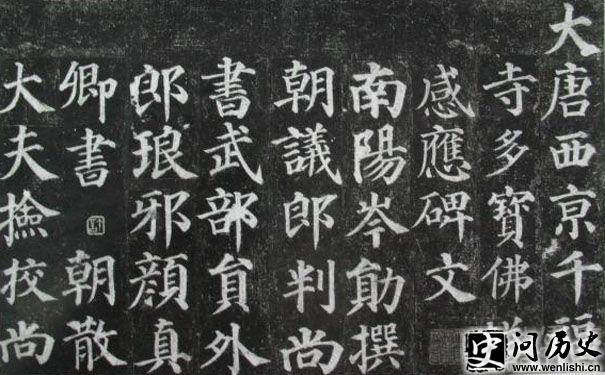 大唐西亰千福
寺多寶佛
感應碑文
南陽岑勛撰
朝議郎判尚
書武部貟外
郎琅邪顏真
卿書 朝散
大夫撿挍尚
问历史
www.wenlishi.cn